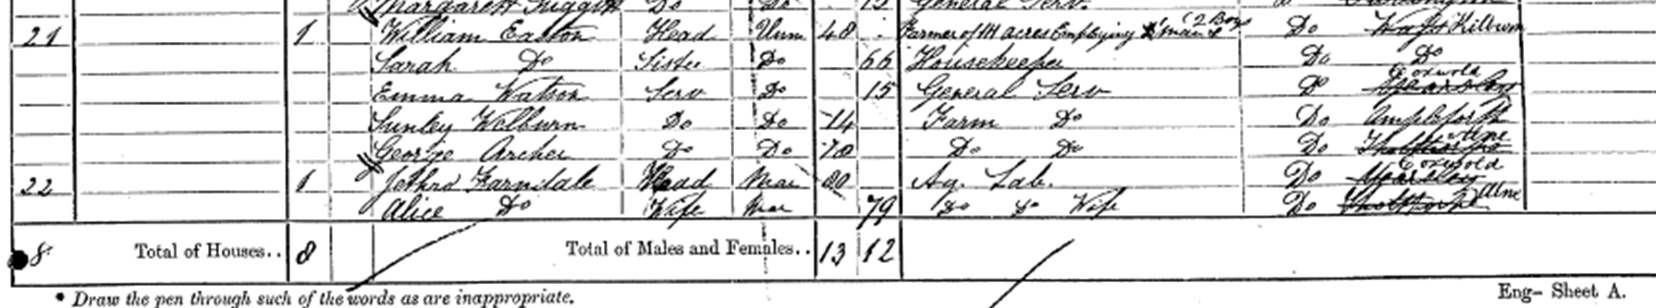 Margarett Do Do 15 General Serv.
21 1 William Easton Head Unm 48 Farmer of 114 acres Employing 1 man & (2 Boys Do Kilburn
Sarah Do Sister Do 66 Housekeeper Do Do
Emma Watson Serv Do 15 General Serv Do Coxwold
Sunley Welburn Do Do 14 Farm Do Do Ampleforth
George Archer Do Do 70 Do Do Do Alne
22 1 Jethro Farndale Head Mar 80 Ag. Lab. Do Coxwold
Alice Do Wife Mar 79 Do Do Wife Do Alne
8 Total of Houses.. 8 Total of Males and Females.. 13 12
* Draw the pen through such of the words as are inappropriate.
Eng- Sheet A.